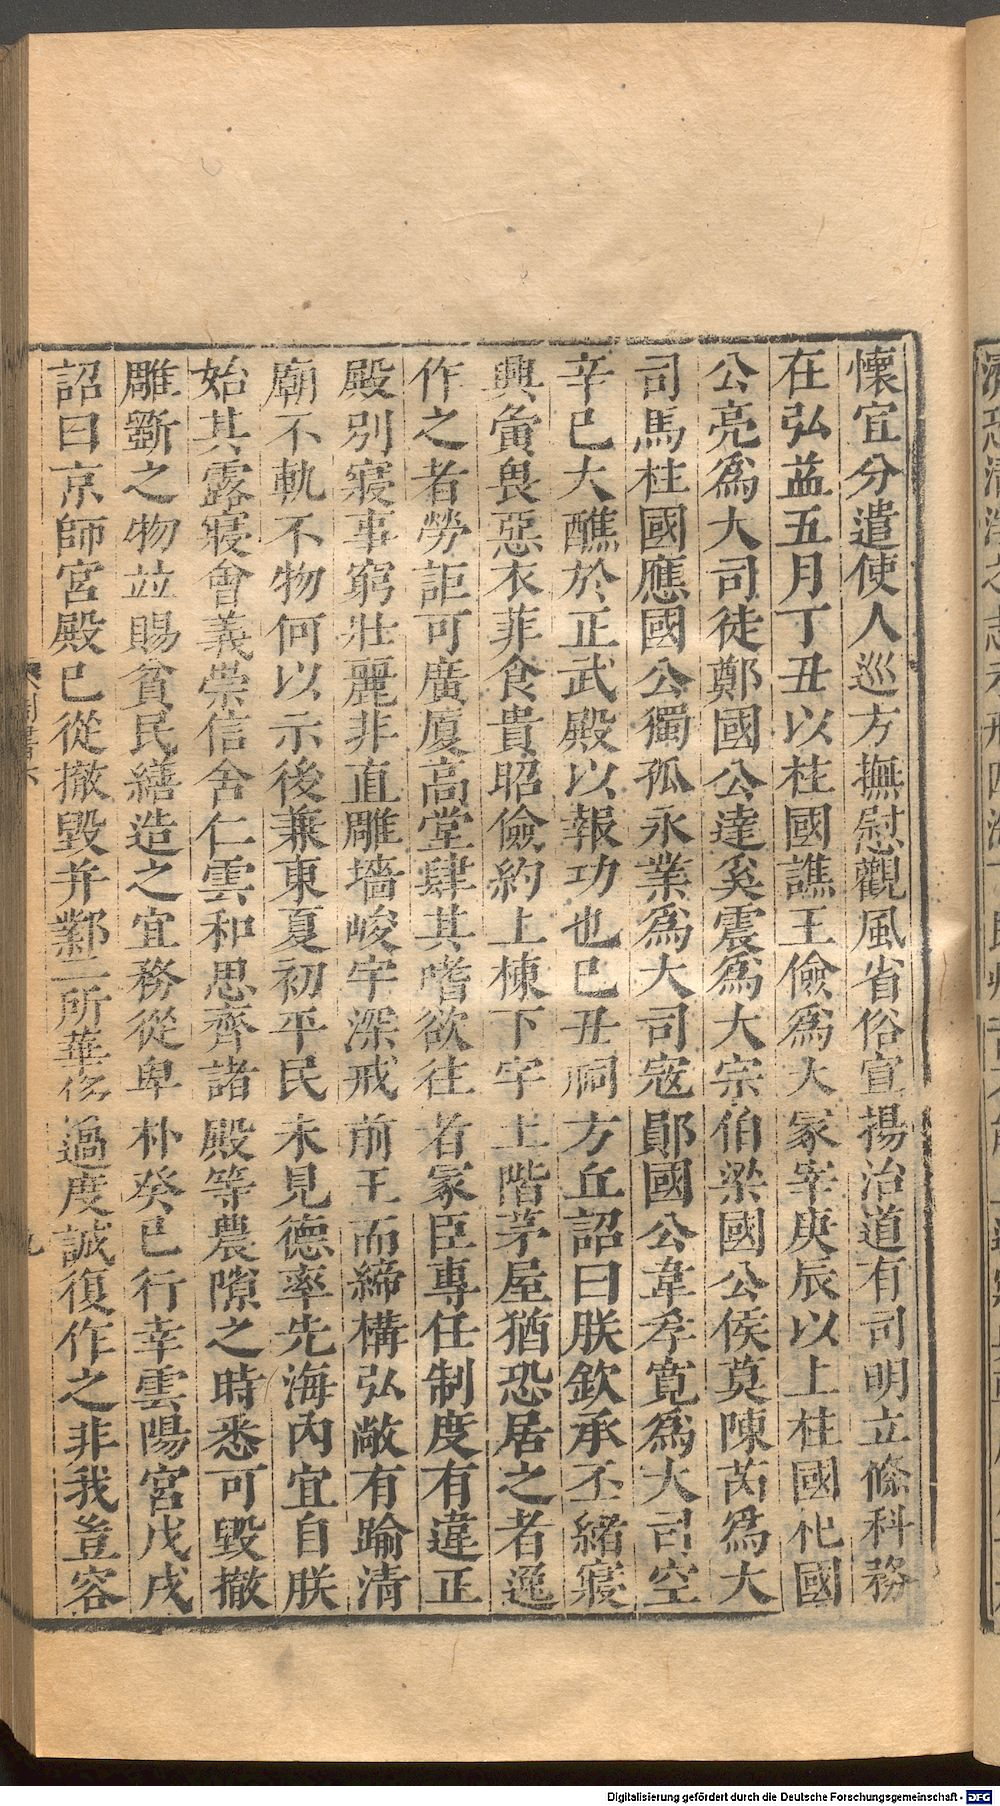 懷宜分遣使人巡方撫慰觀風省俗宣揚治道有司明立條科務
在弘益五月丁丑以柱國譙王儉爲大冢宰庚辰以上柱國杞國
公亮爲大司徒鄭國公達奚震爲大宗伯梁國公侯莫陳芮爲大
司馬柱國應國公獨孤永業爲大司寇鄖國公韋孝寬爲大司空
辛巳大醮於正武殿以報功也己丑祠方丘詔曰朕欽承丕緒寢
興夤畏惡衣菲食貴昭儉約上棟下宇土階茅屋猶恐居之者逸
作之者勞詎可廣厦高堂肆其嗜欲往者冢臣專任制度有違正
殿别寢事窮壯麗非直雕墻峻宇深戒前王而締構弘敞有踰清
廟不軌不物何以示後兼東夏初平民未見德率先海內宜自朕
始其露寢會義崇信含仁雲和思齊諸殿等農隙之時悉可毁撤
雕斲之物並賜貧民繕造之宜務從卑朴癸巳行幸雲陽宮戊戌
詔曰京師宮殿已從撤毁并鄴二所華侈過度誠復作之非我豈容
九
Digitalisierung gefördert durch die Deutsche Forschungsgemeinschaft - DFG